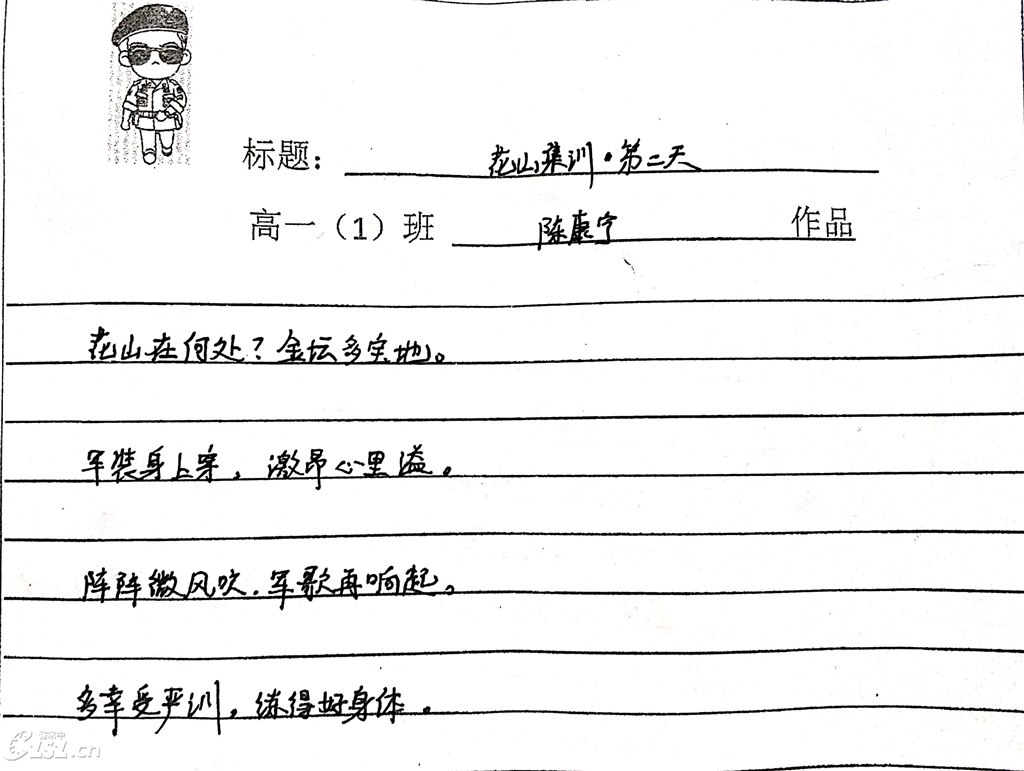 标题：花山集训·第二天
高一（1）班 陈康宁 作品
花山在何处？金坛多宝地。
军装身上穿，激昂心里溢。
阵阵微风吹，军歌再响起。
多幸受严训，练得好身体。
常州中
CZSZ.cn